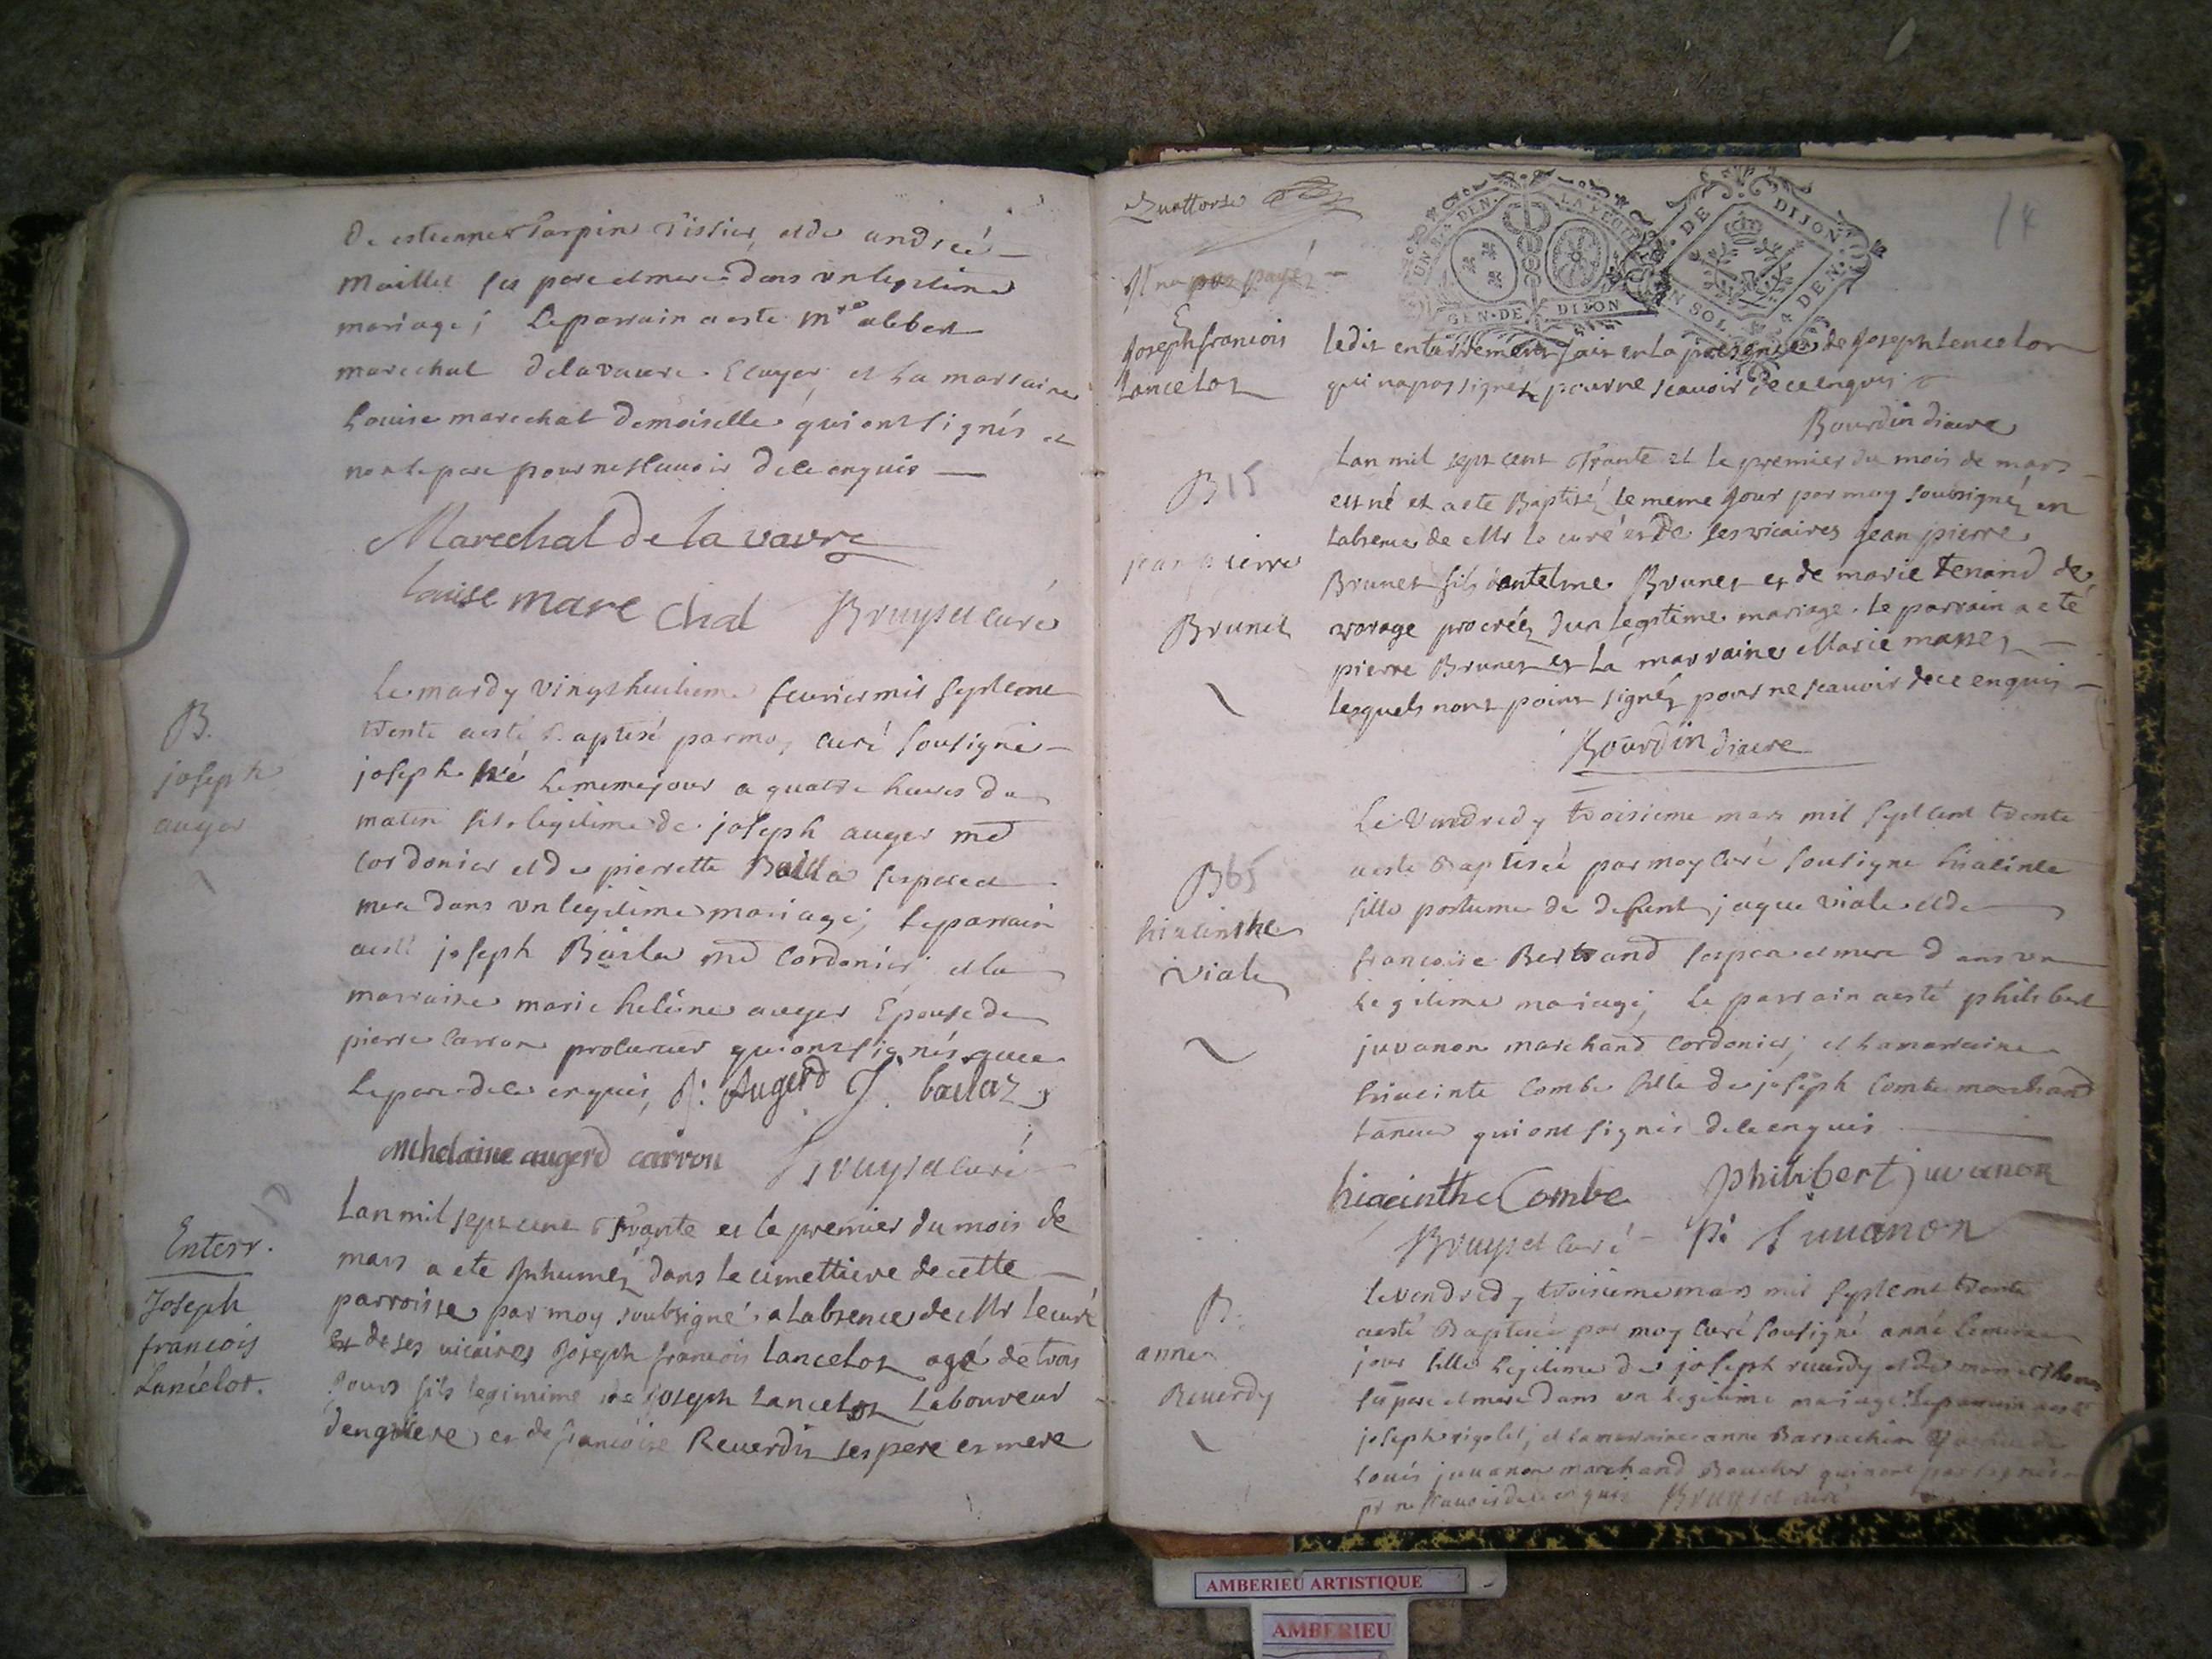 De estienne Tarpin Tissier, et de andreé
Maillet ses pere et mere dans un legitime
mariage; Le parrain a esté mre albert
marechal delavavre Ecuyer, et La marraine
Louise marechal demoiselle qui ont signés et
non le pere pour ne scavoir de ce enquis
Marechal De la vavre
louise mare chal Bruyset curé
B.
joseph
auger
Le mardy vingt huitieme fevrier mil sept cent
trente a esté Baptisé par moy curé sousigné
joseph né le meme jour a quatre heures du
matin fils legitime de joseph auger md
cordonier et de pierrette Bailla ses pere et
mere dans un legitime mariage; Le parrain
a esté joseph Baila md Cordonier et la
marraine marie heléne auger Epouse de
pierre Carron procureur qui ont signés avec
Le pere de ce enquis, J: Augerd J. bailaz
mhelaine augerd carron Bruyset Curé
Enterr.
Joseph
francois
Lancelot.
Lan mil sept cent Trante et le premier du mois de
mars a ete Inhumé dans le cimettiere de cette
parroisse par moy soubsigné a Labsence de Mr le curé
et de ses vicaires Joseph francois Lancelot agé de trois
Jours fils legimime de Joseph Lancelot Laboureur
et de francoise Reverdit ses pere et mere
Quattorse
14
Il na pas payé
UN
DEN.
GEN. DE DIJON
DE DIJON
UN SOL 4 DEN.
E
Joseph francois
Lancelot
ledit enterrement fait en la presence de Joseph Lencelot
qui na pas signé pour ne scauoir de ce enquis
Bourdin diacre
B 15
jean pierre
Brunet
Lan mil sept cent Trante et le premier du mois de mars
est né et a ete Baptisé le meme Jour par moy soubsigné en
Labsence de Mr le curé et de ses vicaires Jean pierre
Brunet fils dantelme Brunet et de marie tenand de
varage procréé d'un legitime mariage. le parrain a eté
pierre Brunet et La marraine Marie
lesquels nont point signé pour ne scauoir de ce enquis
Bourdin diacre
B 65
hiacinthe
viale
Le Vendredy troisieme mars mil sept cent trente
a esté Baptiseé par moy Curé sousigné hiacinte
fille postume de defunt jaque viale et de
francoise Bertrand ses pere et mere dans un
Legitime mariage; Le parrain a esté philibert
juvanon marchand Cordonier; et La marraine
hiacinte Combe fille de joseph Combe marchand
taneur qui ont signés de ce enquis
hiacinthe Combe philibert juvanon
Bruyset Curé P: Juuanon
B.
anne
Reverdy
Le vendredy troisieme mars mil sept cent trente
a esté Baptiseé par moy Curé sousigné anne Le meme
jour fille Legitime de joseph reverdy et de
ses pere et mere dans un legitime mariage: Le parrain a esté
joseph rigolet; et La marraine anne Barrachin
Louis juvanon marchand Boucher qui nont pas signés
pr ne scavoir de ce enquis Bruyset curé
AMBERIEU ARTISTIQUE
AMBERIEU